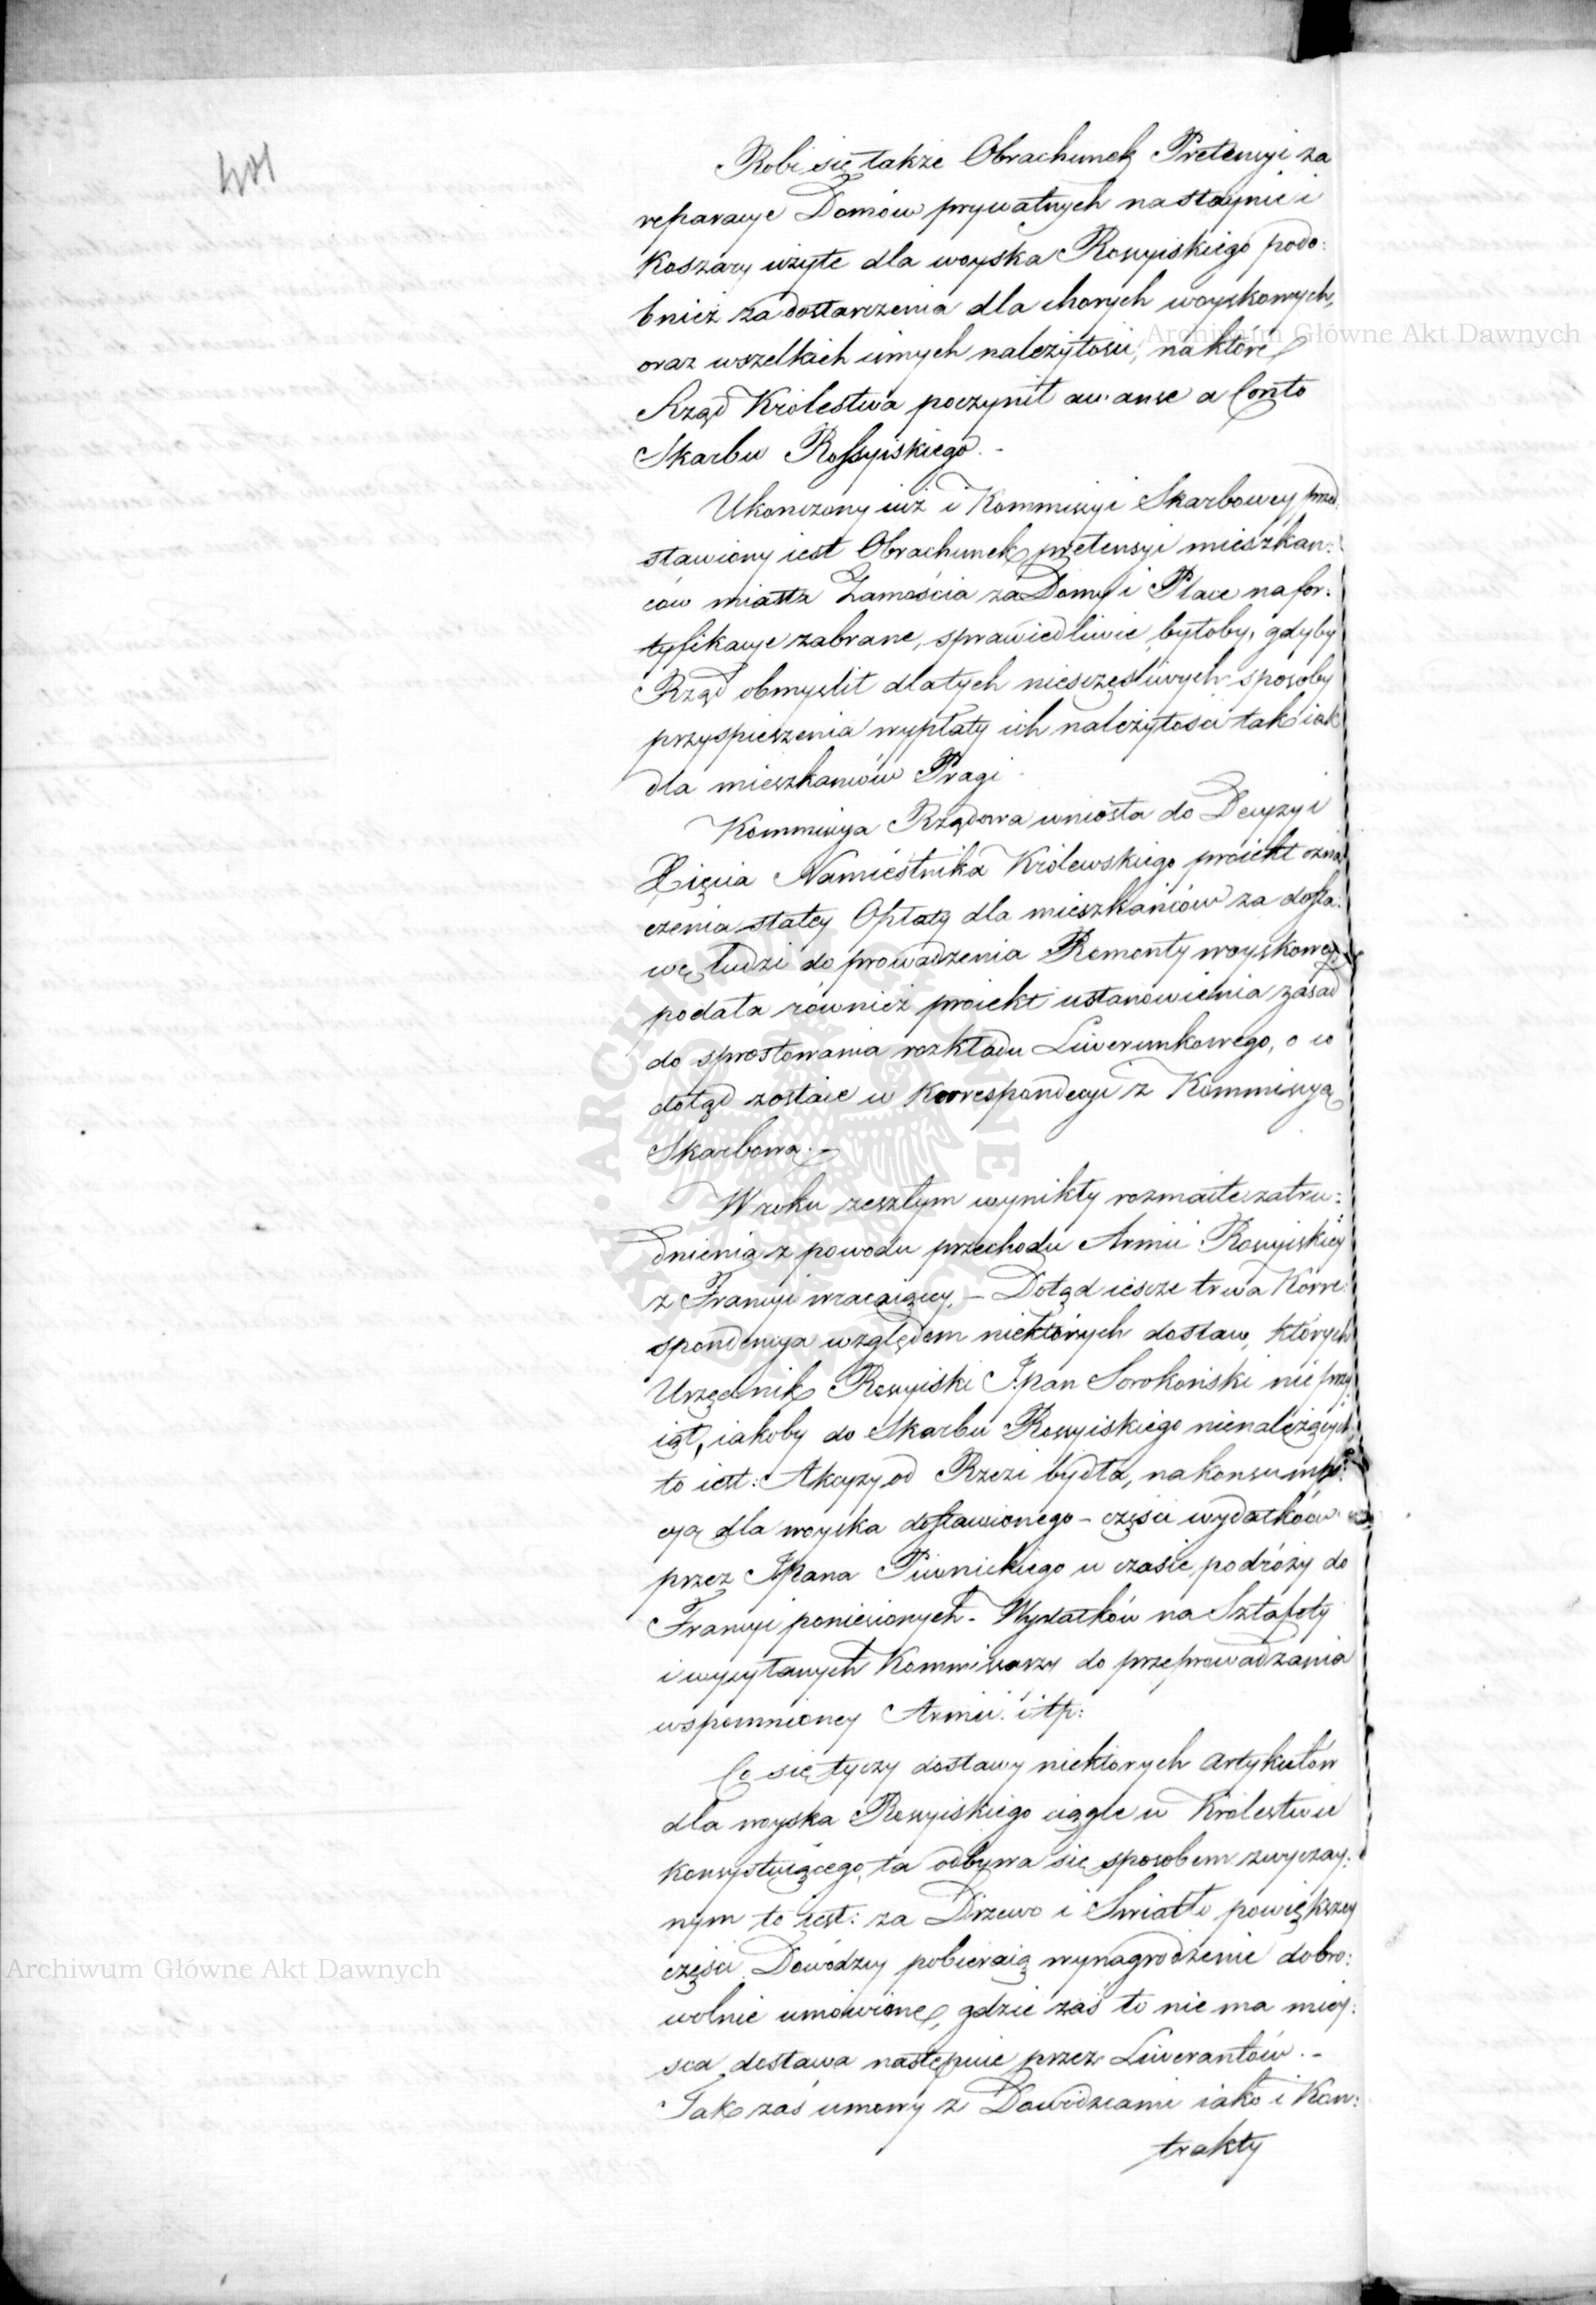 401
Robi się także Obrachunek Pretensyi za
reparacye Domów prywatnych na staynie i
Koszary użyte dla woyska Rossyiskiego podo:
bnież za dostarczenia dla chorych woyskowych,
oraz wszelkich innych należytości, na które
Rząd Królestwa poczynił awanse a Conto
Skarbu Rossyiskiego. -
Ukończony iuż i Kommissyi Skarbowey przed:
stawiony iest Obrachunek pretensyi mieszkań:
ców miasta Zamościa za Domy i Place na for:
tyfikacye zabrane, sprawiedliwie byłoby, gdyby
Rząd obmyslił dla tych niesczęsliwych sposoby
przyspieszenia wypłaty ich należytości tak iak
dla mieszkańców Pragi
Kommissya Rządowa wniosła do Decyzyi
Xięcia Namiestnika Królewskiego proiekt ozna
czenia stałey Opłaty dla mieszkańców za dosta:
wę ludzi do prowadzenia Remonty woyskowey,
podała również proiekt ustanowienia zasad
do sprostowania rozkładu Liwerunkowego, o co
dotąd zostaie w Korrespondecyi z Kommissyą
Skarbową. -
W roku zeszłym wynikły rozmaite zatru:
dnienia z powodu przechodu Armii Rossyiskiey
z Francyi wracaiącey, - Dotąd iescze trwa Korre:
spondencya względem niektórych dostaw, których
Urzędnik Rossyiski JPan Sorokoński nie przy
iął, iakoby do Skarbu Rossyiskiego nienależących
to iest: Akcyzy od Rzezi bydła, na konsump:
cyą dla woyska dostawionego - części wydatków
przez JPana Piwnickiego w czasie podróży do
Francyi poniesionych - Wydatków na Sztafety
i wysyłanych Kommissarzy do przeprowadzania
wspomnioney Armii. itp:
Co się tyczy dostawy niektórych artykułów
dla woyska Rossyiskiego ciągle w Królestwie
konsystuiącego, ta odbywa się sposobem zwyczay:
nym to iest: za Drzewo i Swiatło powiększey
części Dowódzcy pobieraią wynagrodzenie dobro:
wolnie umówione, gdzie zaś to nie ma miey:
sca dostawa następuie przez Liwerantów. -
Tak zaś umowy z Dowódzcami iako i Kon:
trakty
Archiwum Główne Akt Dawnych
Archiwum Główne Akt Dawnych